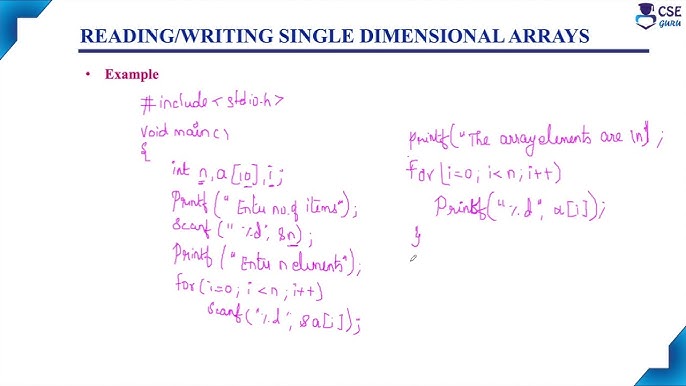 CSE
GURU
READING/WRITING SINGLE DIMENSIONAL ARRAYS
• Example
#include<stdio.h>
void main()
{
int n,a[10],i;
Printf("Enter no.of items");
Scanf("%d",&n);
Printf("Enter n elements");
for(i=0; i<n; i++)
Scanf("%d",&a[i]);
printf("The array elements are \n");
For(i=0; i<n; i++)
Printf("%d", a[i]);
}